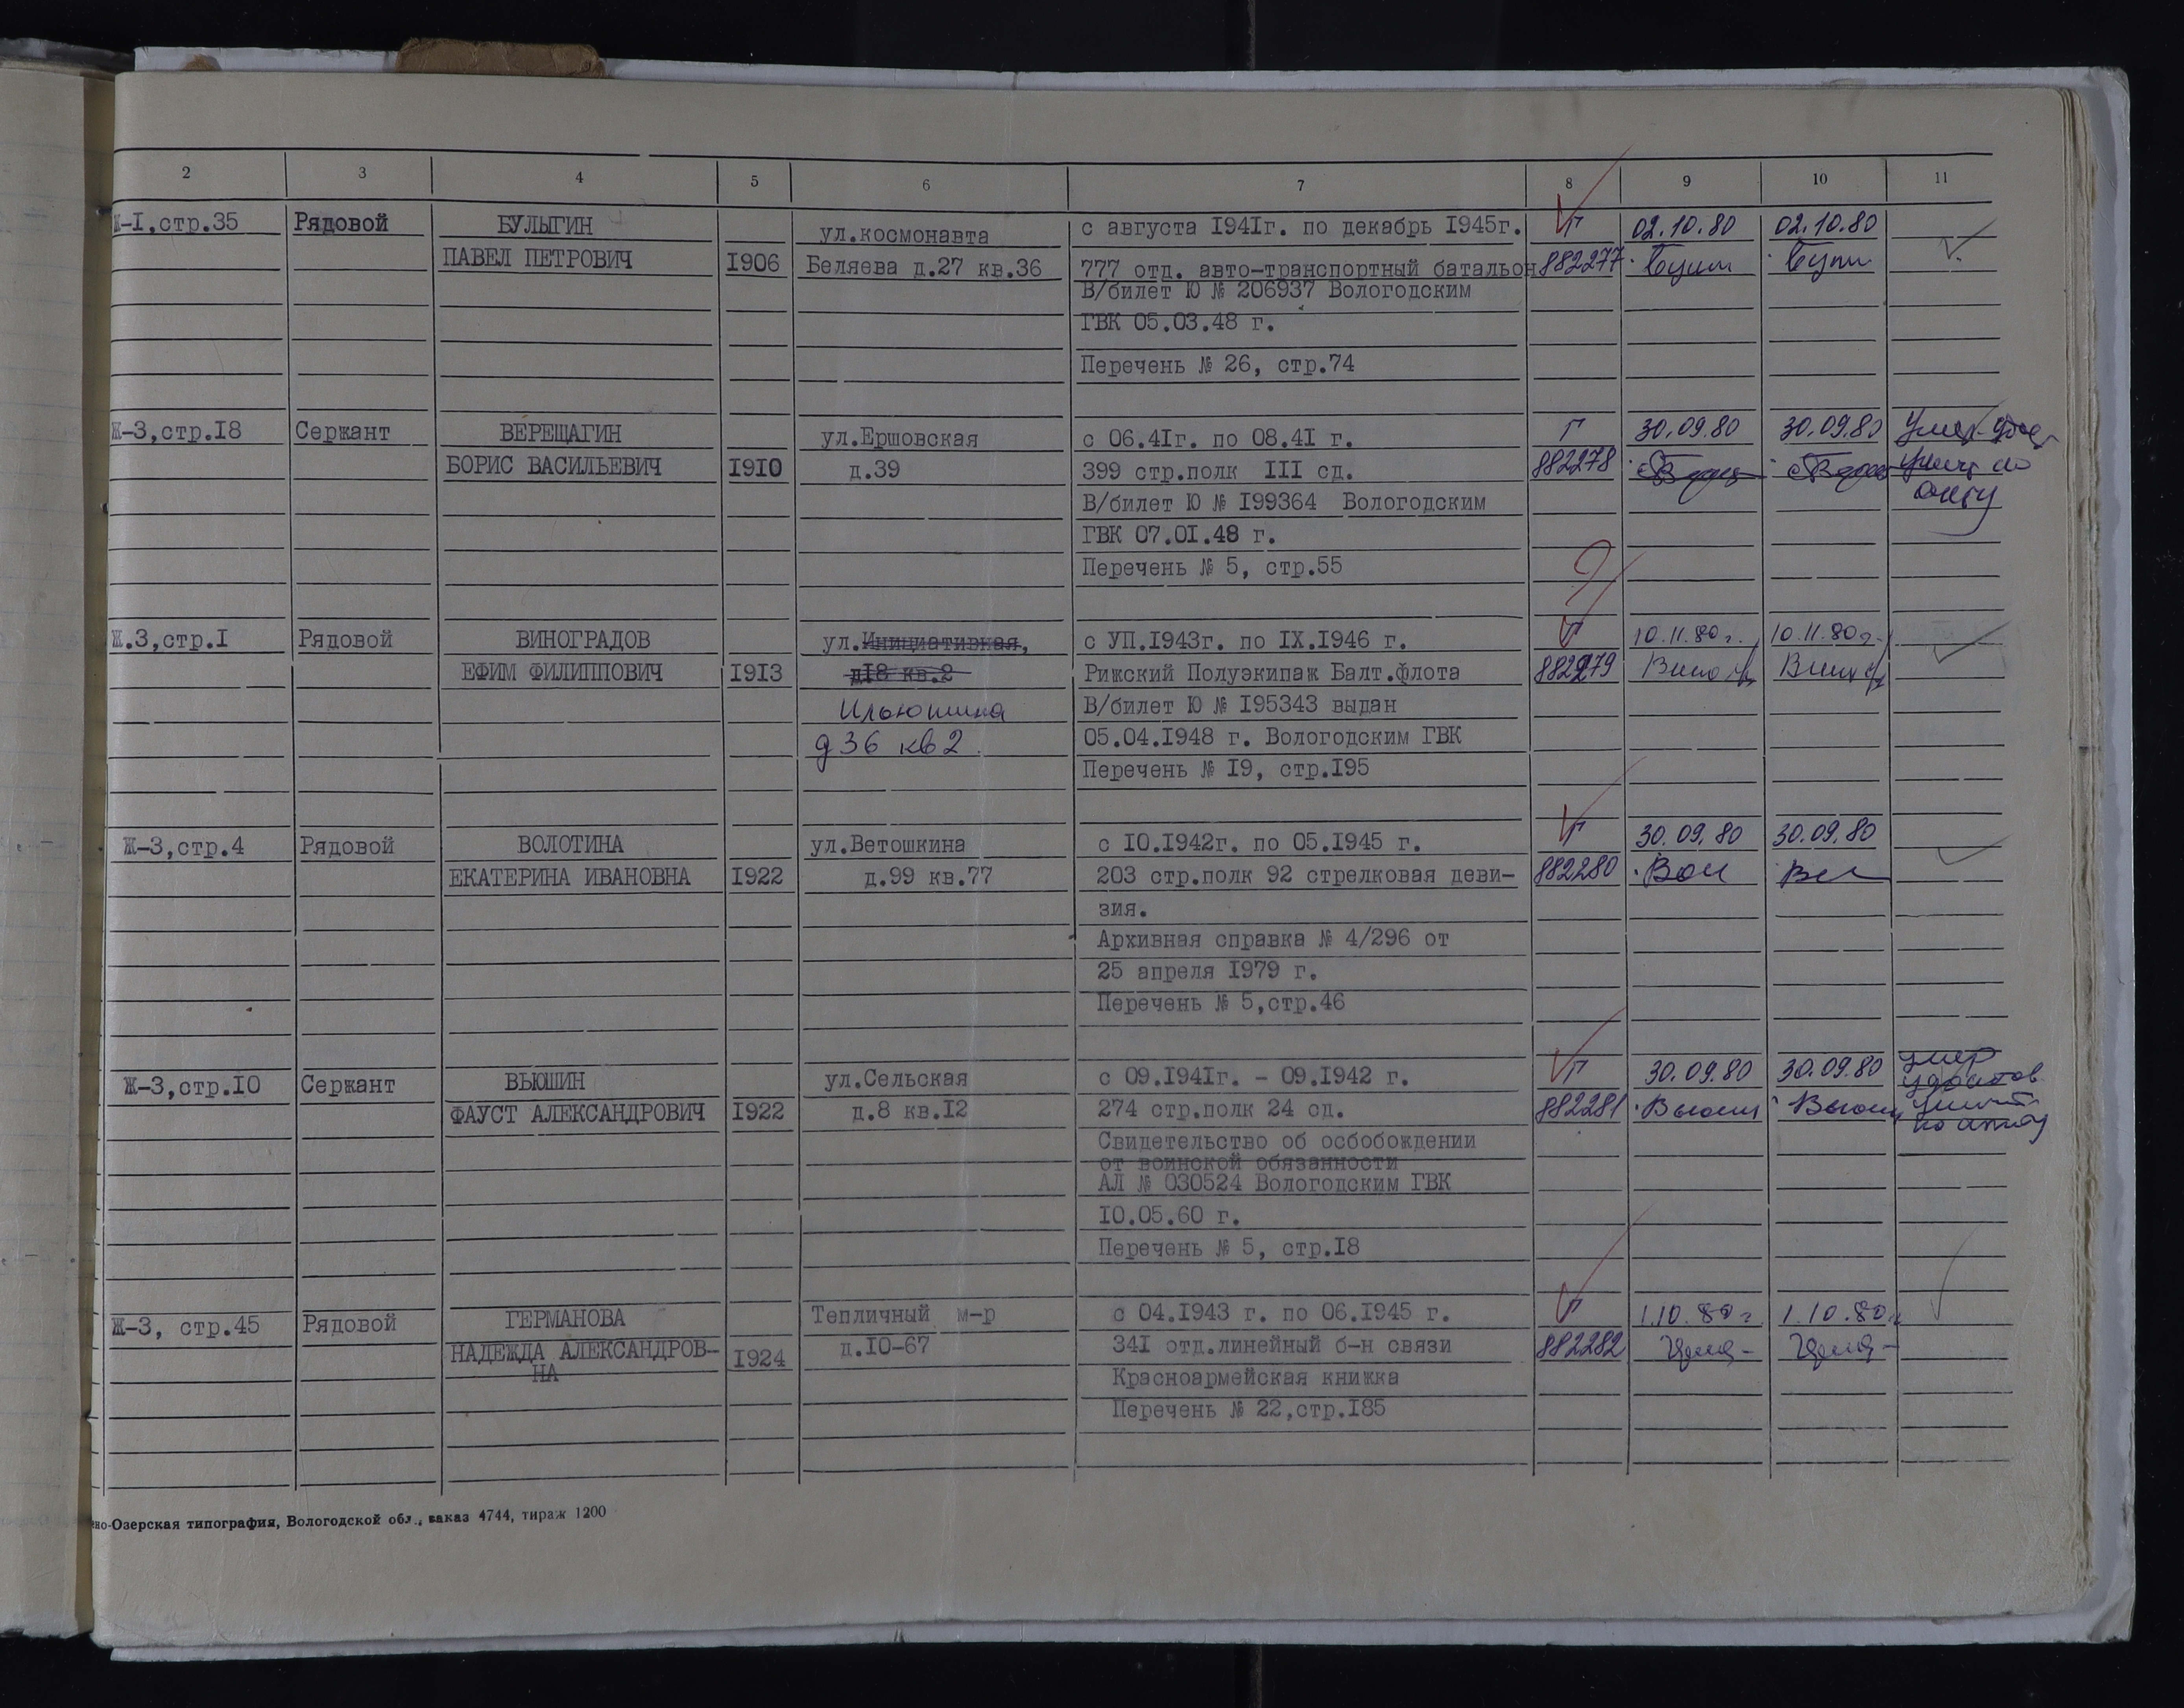 2 3 4 5 6 7 8 9 10 11
Ж-I,стр.35 Рядовой БУЛЫГИН ул.космонавта с августа I94Iг. по декабрь I945г. Г 02.10.80 02.10.80
ПАВЕЛ ПЕТРОВИЧ I906 Беляева д.27 кв.36 777 отд. авто-транспортный батальон 882277
В/билет Ю № 206937 Вологодским
ГВК 05.03.48 г.
Перечень № 26, стр.74
Ж-3,стр.I8 Сержант ВЕРЕЩАГИН ул.Ершовская с 06.4Iг. по 08.4I г. Г 30.09.80 30.09.80 Умер
БОРИС ВАСИЛЬЕВИЧ I9I0 д.39 399 стр.полк III сд. 882278 по
В/билет Ю № I99364 Вологодским акту
ГВК 07.0I.48 г.
Перечень № 5, стр.55
Ж.3,стр.I Рядовой ВИНОГРАДОВ ул.Инициативная, с УП.I943г. по IX.I946 г. Г 10.11.80г. 10.11.80г.
ЕФИМ ФИЛИППОВИЧ I9I3 д18 кв.2 Рижский Полуэкипаж Балт.флота 882279
Ильюшина В/билет Ю № I95343 выдан
д 36 кв 2. 05.04.I948 г. Вологодским ГВК
Перечень № I9, стр.I95
Ж-3,стр.4 Рядовой ВОЛОТИНА ул.Ветошкина с I0.I942г. по 05.I945 г. Г 30.09.80 30.09.80
ЕКАТЕРИНА ИВАНОВНА I922 д.99 кв.77 203 стр.полк 92 стрелковая деви- 882280
зия.
Архивная справка № 4/296 от
25 апреля I979 г.
Перечень № 5,стр.46
Ж-3,стр.I0 Сержант ВЬЮШИН ул.Сельская с 09.I94Iг. - 09.I942 г. Г 30.09.80 30.09.80 умер
ФАУСТ АЛЕКСАНДРОВИЧ I922 д.8 кв.I2 274 стр.полк 24 сд. 882281 удостов
Свидетельство об освобождении по акту
от воинской обязанности
АЛ № 030524 Вологодским ГВК
I0.05.60 г.
Перечень № 5, стр.I8
Ж-3, стр.45 Рядовой ГЕРМАНОВА Тепличный м-р с 04.I943 г. по 06.I945 г. Г 1.10.80г 1.10.80г
НАДЕЖДА АЛЕКСАНДРОВ- I924 д.I0-67 34I отд.линейный б-н связи 882282
НА Красноармейская книжка
Перечень № 22,стр.I85
но-Озерская типография, Вологодской обл., заказ 4744, тираж 1200